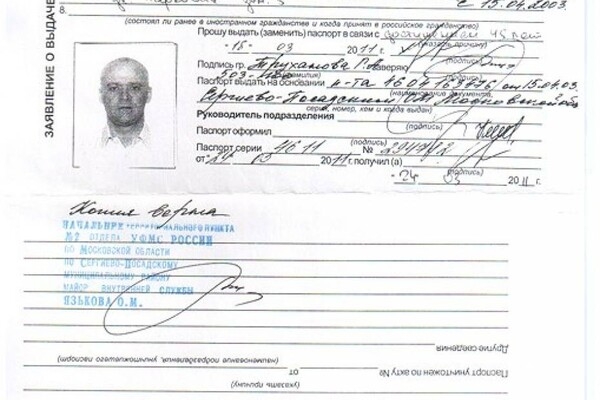 ЗАЯВЛЕНИЕ О ВЫДАЧЕ
с 15.04.2003.
8.
(состоял ли ранее в иностранном гражданстве и когда принят в российское гражданство)
Прошу выдать (заменить) паспорт в связи с достижением 45 лет
(указать причину)
"18" 03 2011 г.
(подпись)
Подпись гр. Труханова Г.А. заверяю
(фамилия)
Паспорт выдать на основании
от 15.04.03.
(наименование документа,
Сергиево-Посадским ОМ Московской обл
серия, номер, кем и когда выдан)
Руководитель подразделения
(подпись)
Паспорт оформил
(подпись)
Паспорт серии 4611 № 294782
от "24" 03 2011 г. получил (а)
(подпись)
"24" 03 2011 г.
Копия верна
НАЧАЛЬНИК ТЕРРИТОРИАЛЬНОГО ПУНКТА
№2 ОТДЕЛА УФМС РОССИИ
ПО МОСКОВСКОЙ ОБЛАСТИ
ПО СЕРГИЕВО-ПОСАДСКОМУ
МУНИЦИПАЛЬНОМУ РАЙОНУ
МАЙОР ВНУТРЕННЕЙ СЛУЖБЫ
ЯЗЫКОВА О.М.
Другие сведения
(наименование подразделения, уничтожившего паспорт)
от
Паспорт уничтожен по акту №
(указать причину)